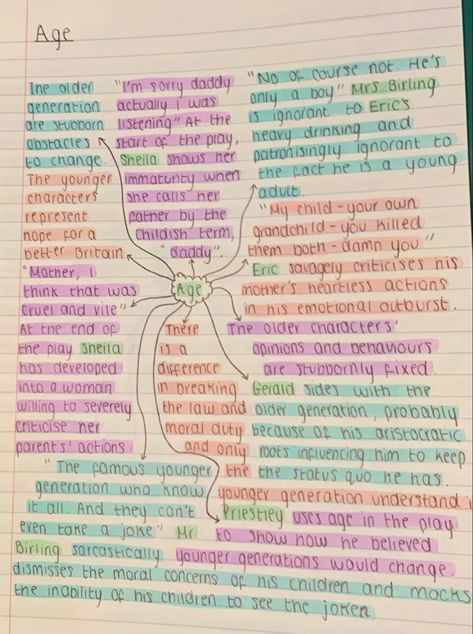 Age
The older
generation
are stubborn
obstacles
to change.
The younger
characters
represent
hope for a
better Britain
"I'm sorry daddy
actually I was
listening" At the
start of the play,
Sheila shows her
immaturity when
she calls her
father by the
childish term,
"daddy".
"No of course not. He's
only a boy" Mrs Birling
is ignorant to Eric's
heavy drinking and
patronisingly ignorant to
the fact he is a young
adult.
"My child - your own
grandchild - you killed
them both - damn you"
Eric savagely criticises his
mother's heartless actions
in his emotional outburst.
Age
"Mother, I
think that was
cruel and vile"
At the end of
the play Sheila
has developed
into a woman
willing to severely
criticise her
parents' actions
There
is a
difference
in breaking
the law and
moral duty
and only
the
younger generation understand i
The older characters'
opinions and behaviours
are stubbornly fixed.
Gerald sides with the
older generation, probably
because of his aristocratic
roots influencing him to keep
the status quo he has.
Priestley uses age in the play
to show how he believed
younger generations would change.
"The famous younger
generation who know
it all. And they can't
even take a joke" Mr
Birling sarcastically
dismisses the moral concerns of his children and mocks
the inability of his children to see the joke.